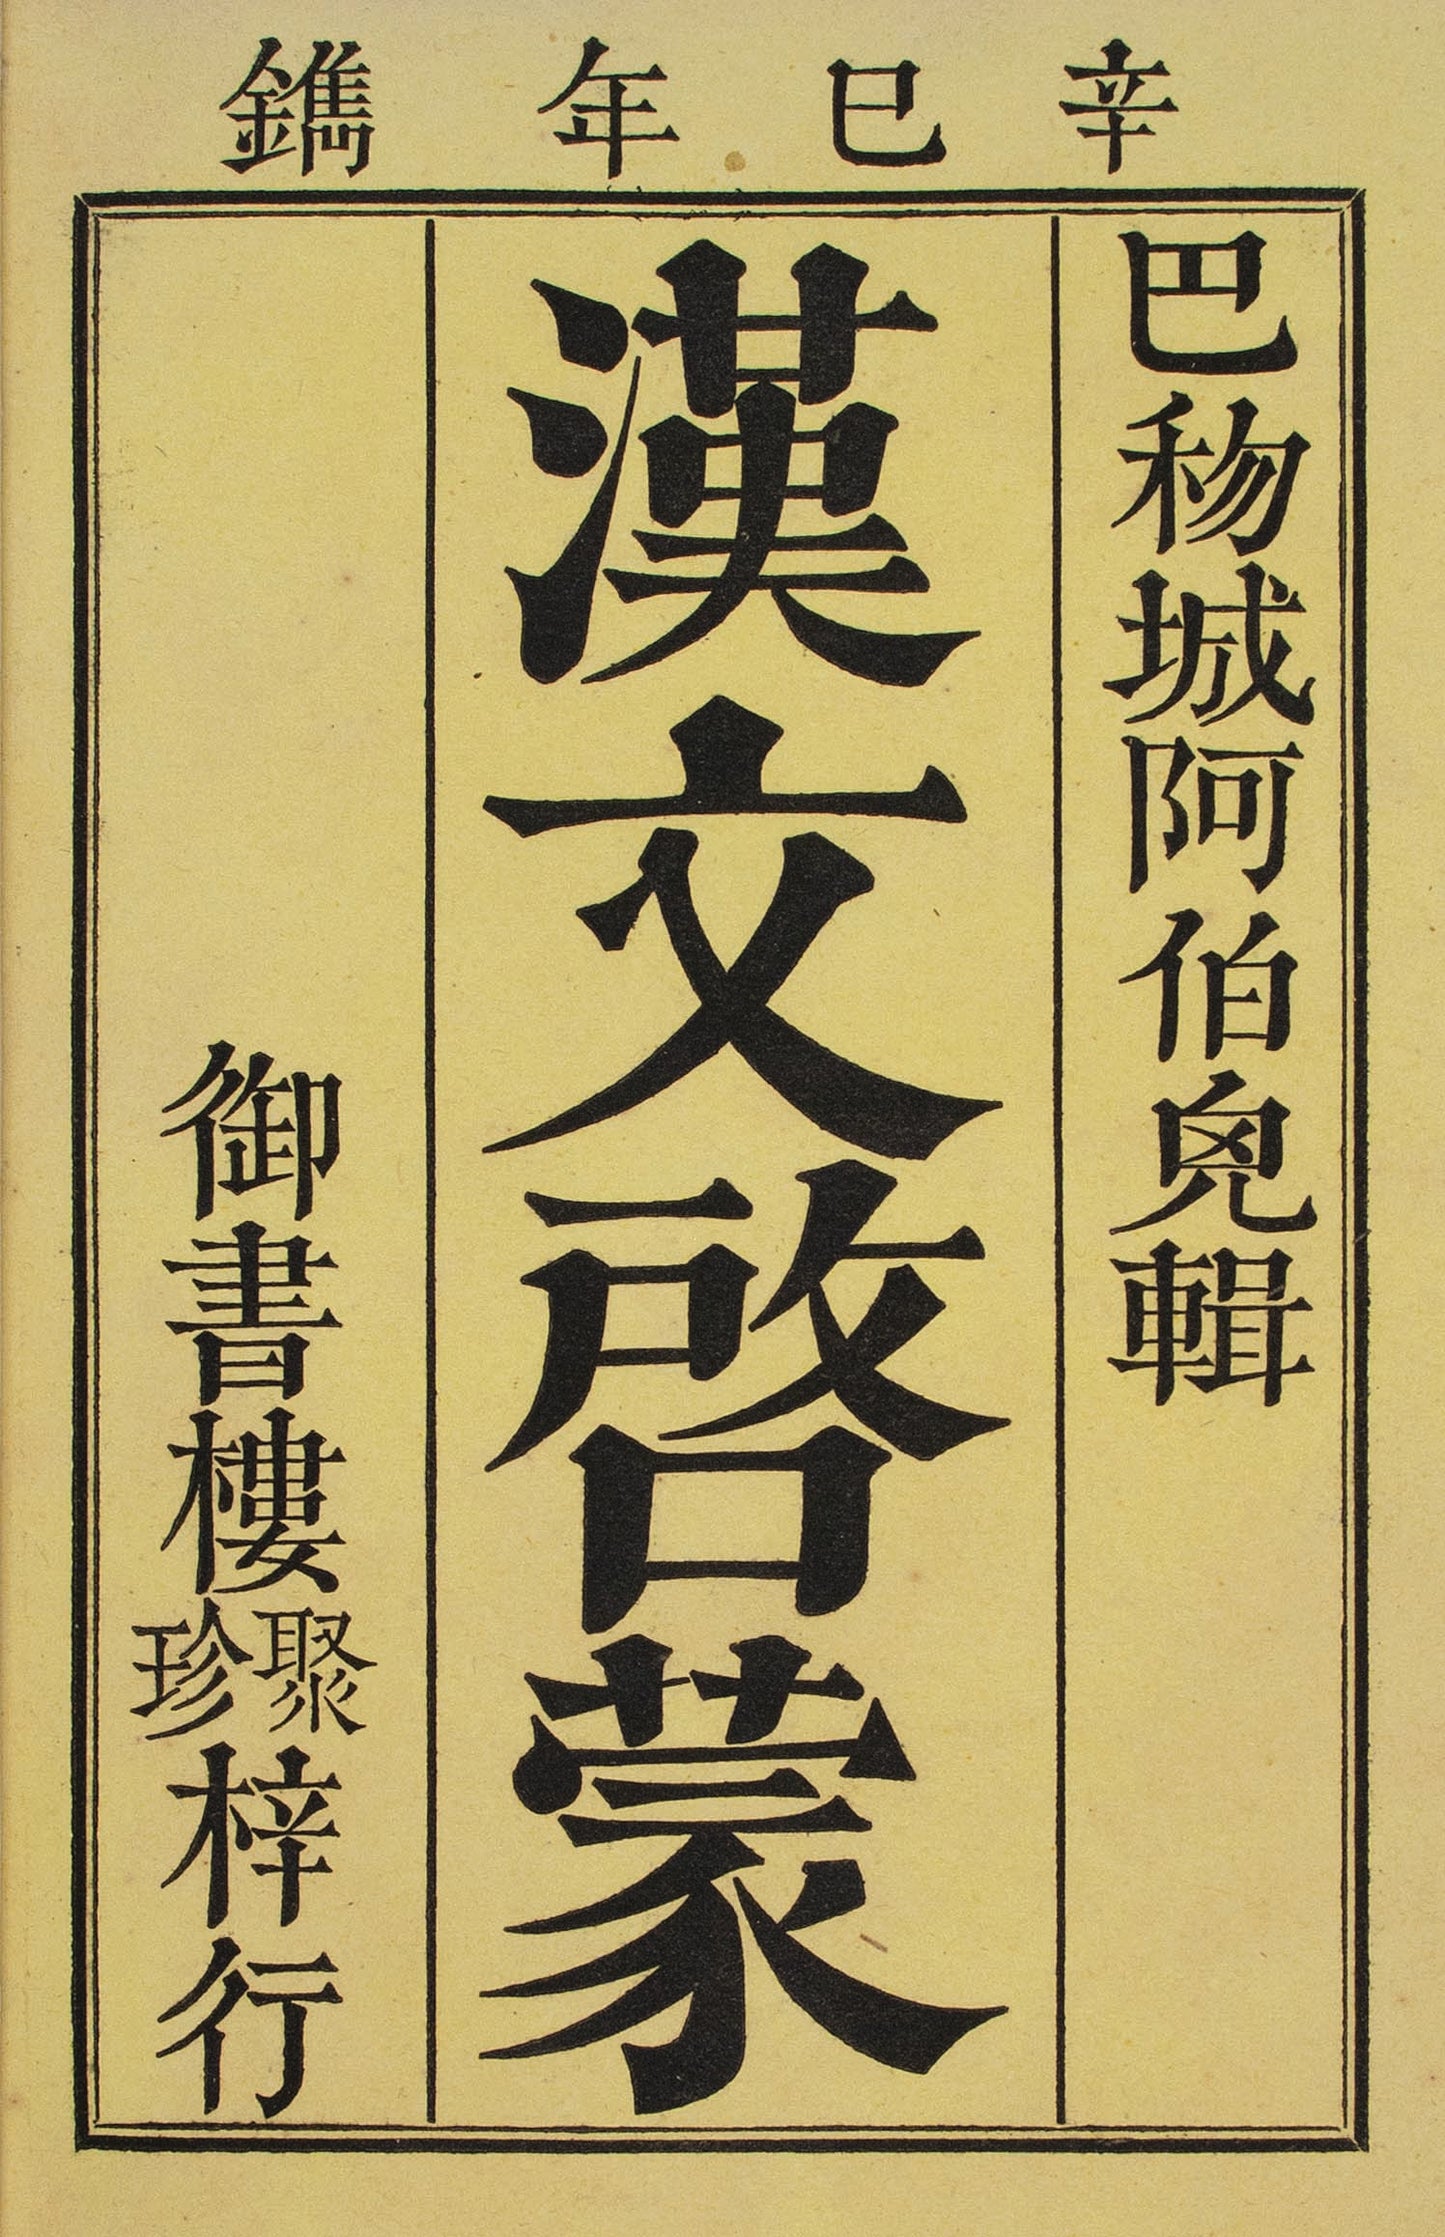 辛巳年鐫
巴𥝢城阿伯兒輯
漢文啓蒙
御書樓聚珍梓行